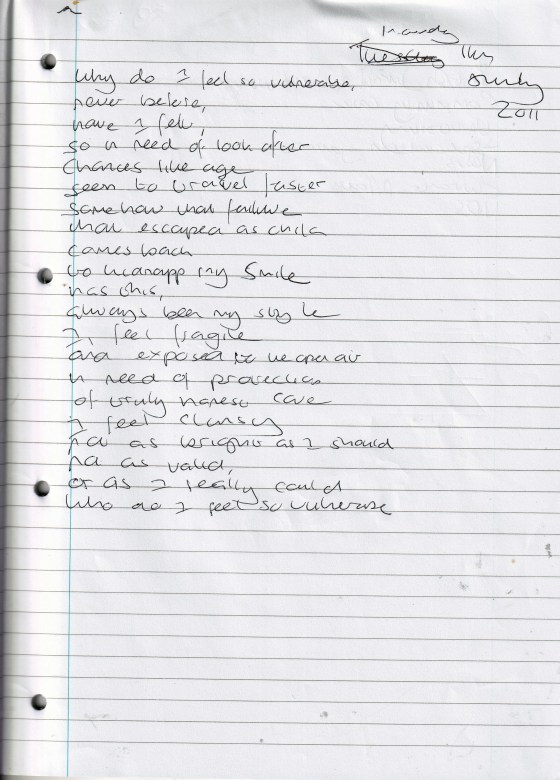 2011
Why do I feel so vulnerable,
never before,
have I felt,
so in need of look after
Chances like age
seem to travel faster
somehow that failure
that escaped as child
comes back
to kidnapp my Smile
has this,
always been my style
I feel fragile
and exposed to the open air
in need of protection
of truly honest care
I feel clumsy
not as bright as I should
not as valid,
or as I really could
Who do I feel so vulnerable